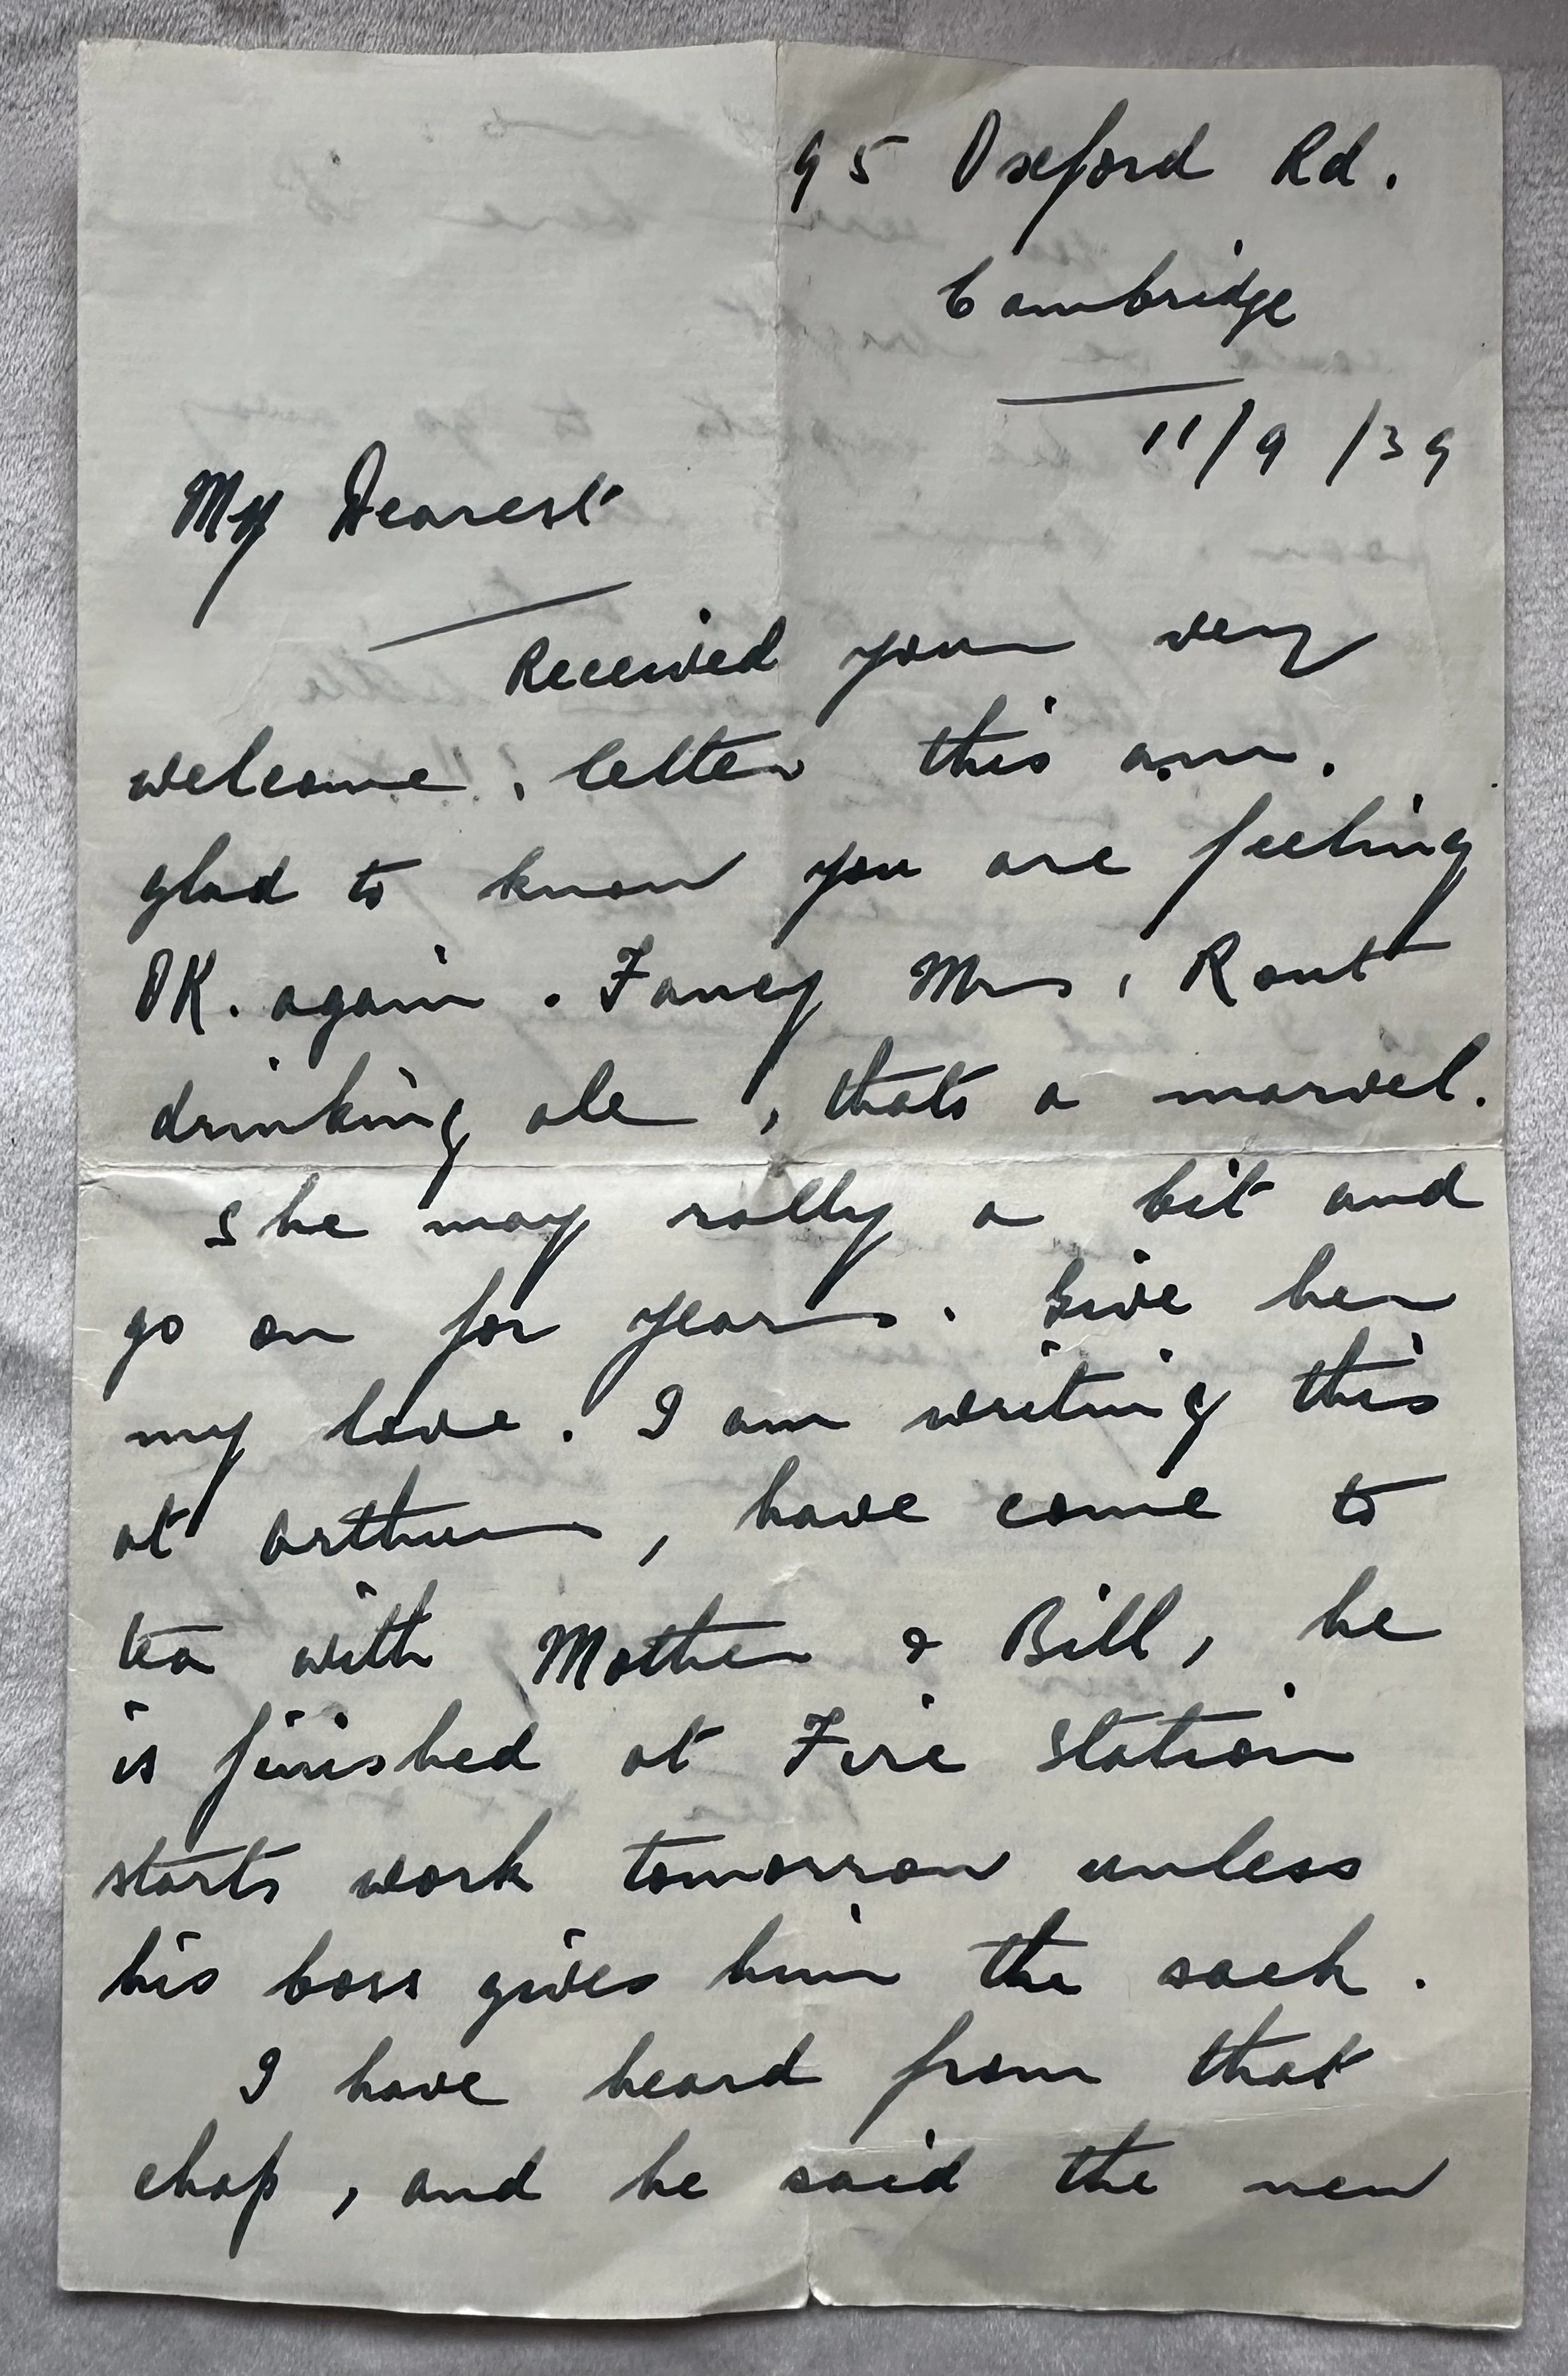 95 Oxford Rd.
Cambridge
11/9/39
My Dearest
Received your very
welcome, letter this a.m.
glad to know you are feeling
OK. again. Fancy Mrs, Rout
drinking ale, thats a marvel.
She may rally a bit and
go on for years. Give her
my love. I am writing this
at Arthurs, have come to
tea with Mother & Bill, he
is finished at Fire Station
starts work tomorrow unless
his boss gives him the sack.
I have heard from that
chap, and he said the new